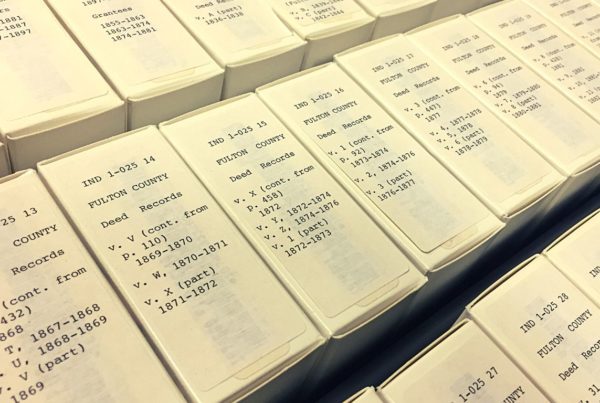 1881
-1887
-1897
1897-
Grantees
1855-1863
1863-1874
1874-1881
v. A (part)
1836-1838
1842-1844
13
COUNTY
Records
(cont. from
432)
1868
T, 1867-1868
U, 1868-1869
v. V (part)
1869
IND 1-025 14
FULTON COUNTY
Deed Records
v. V (cont. from
p. 110)
1869-1870
v. W, 1870-1871
v. X (part)
1871-1872
IND 1-025 15
FULTON COUNTY
Deed Records
v. X (cont. from
p. 458)
1872
v. Y, 1872-1874
v. Z, 1874-1876
v. 1 (part)
1872-1873
IND 1-025 16
FULTON COUNTY
Deed Records
v. 1 (cont. from
p. 92)
1873-1874
v. 2, 1874-1876
v. 3 (part)
1876-1877
IND 1-025 17
FULTON COUNTY
Deed Records
v. 3 (cont. from
p. 447)
1877
v. 4, 1877-1878
v. 5, 1878
v. 6 (part)
1878-1879
IND 1-025 18
FULTON COUNTY
Deed Records
(cont. from
1879
1880-1881
IND 1-025 27
IND 1-025 28
FULTON COUNTY
Deed Records
v. 31